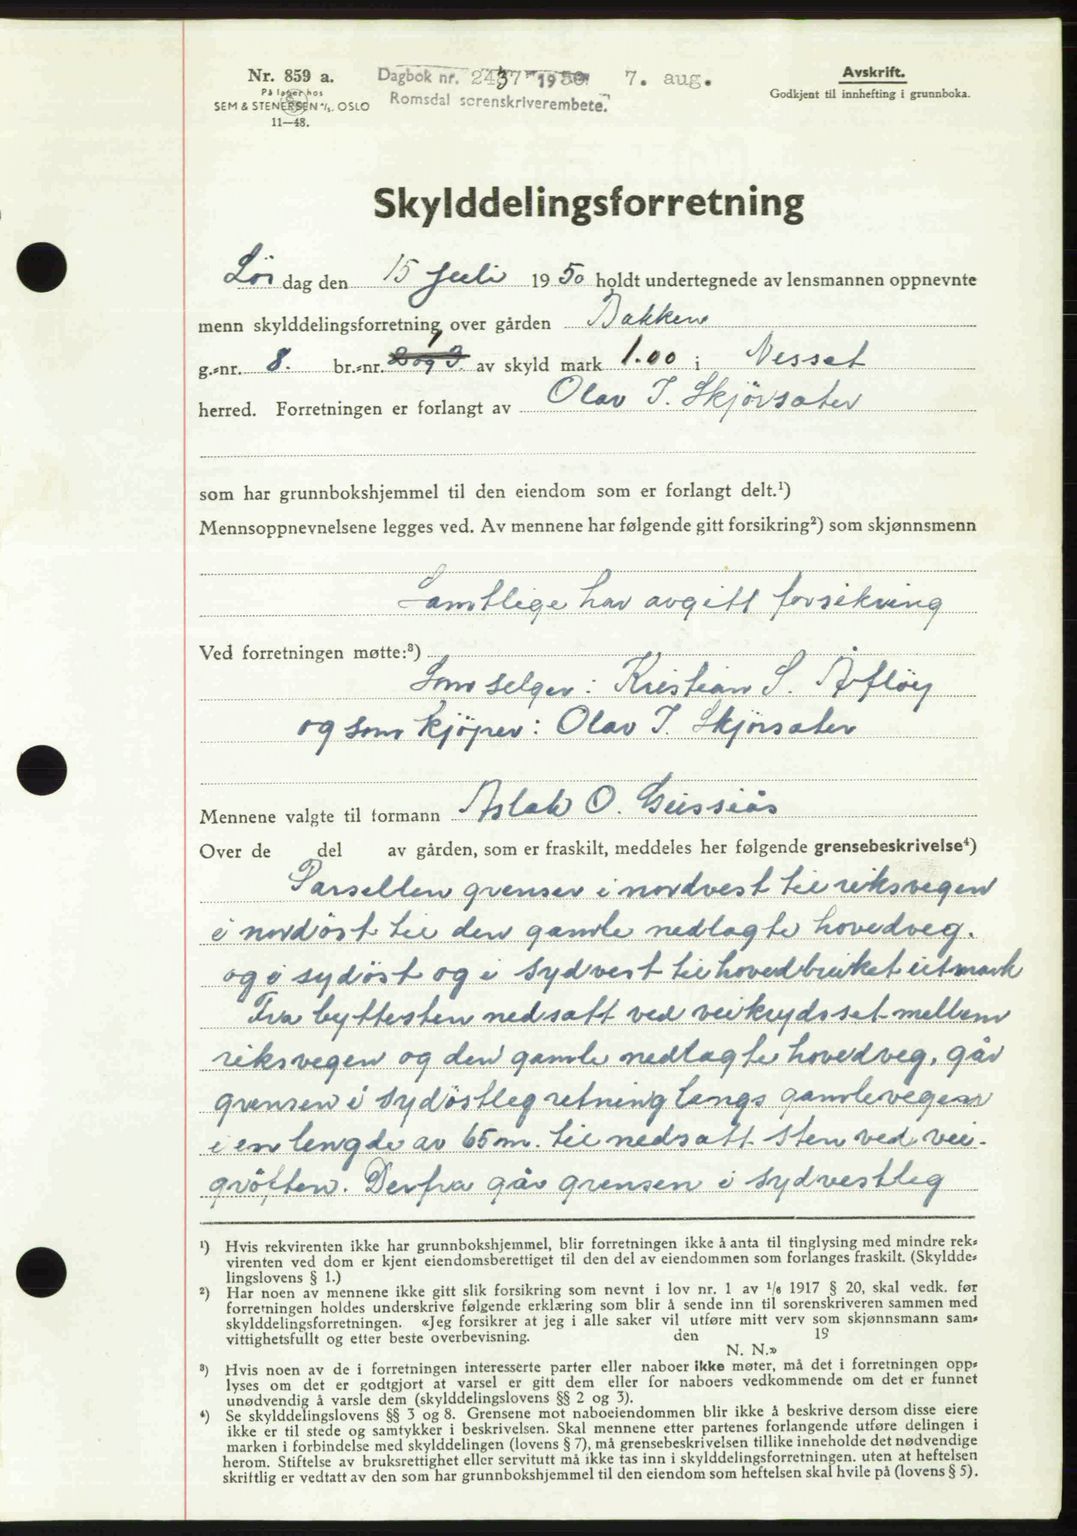 Nr. 859 a.
På lager hos
SEM & STENERSEN A/S. OSLO
11—48.
Dagbok nr. 2437 1950 7. aug.
Romsdal sorenskriverembete.
Avskrift.
Godkjent til innhefting i grunnboka.
Skylddelingsforretning
Lør dag den 15 Juli 1950 holdt undertegnede av lensmannen oppnevnte
menn skylddelingsforretning over gården Bakken
g.-nr. 8. br.-nr. 2 og 3. 1 av skyld mark 1.00 i Nesset
herred. Forretningen er forlangt av Olav J. Skjörsater
som har grunnbokshjemmel til den eiendom som er forlangt delt.¹)
Mennsoppnevnelsene legges ved. Av mennene har følgende gitt forsikring²) som skjønnsmenn
Samtlige har avgitt forsikring
Ved forretningen møtte:³)
Som selger: Kristian S. Åfløy
og som kjöper: Olav J. Skjörsater
Mennene valgte til formann Aslak O. Gussiås
Over de del av gården, som er fraskilt, meddeles her følgende grensebeskrivelse⁴)
Parsellen grenser i nordvest til riksvegen
i nordöst til den gamle nedlagte hovedveg.
og i sydöst og i sydvest til hovedbruket utmark
Fra byttesten nedsatt ved veikrydsset mellem
riksvegen og den gamle nedlagte hovedveg, går
grensen i sydöstleg retning langs gamlevegen
i en lengde av 65 m. til nedsatt sten ved vei-
gröften. Derfra går grensen i sydvestleg
¹) Hvis rekvirenten ikke har grunnbokshjemmel, blir forretningen ikke å anta til tinglysing med mindre rek-
virenten ved dom er kjent eiendomsberettiget til den del av eiendommen som forlanges fraskilt. (Skyldde-
lingslovens § 1.)
²) Har noen av mennene ikke gitt slik forsikring som nevnt i lov nr. 1 av 1/6 1917 § 20, skal vedk. før
forretningen holdes underskrive følgende erklæring som blir å sende inn til sorenskriveren sammen med
skylddelingsforretningen. «Jeg forsikrer at jeg i alle saker vil utføre mitt verv som skjønnsmann sam-
vittighetsfullt og etter beste overbevisning. den 19
N. N.»
³) Hvis noen av de i forretningen interesserte parter eller naboer ikke møter, må det i forretningen opp-
lyses om det er godtgjort at varsel er gitt dem eller for naboers vedkommende om det er funnet
unødvendig å varsle dem (skylddelingslovens §§ 2 og 3).
⁴) Se skylddelingslovens §§ 3 og 8. Grensene mot naboeiendommen blir ikke å beskrive dersom disse eiere
ikke er til stede og samtykker i beskrivelsen. Skal mennene etter partenes forlangende utføre delingen i
marken i forbindelse med skylddelingen (lovens § 7), må grensebeskrivelsen tillike inneholde det nødvendige
herom. Stiftelse av bruksrettighet eller servitutt må ikke tas inn i skylddelingsforretningen. uten at heftelsen
skriftlig er vedtatt av den som har grunnbokshjemmel til den eiendom som heftelsen skal hvile på (lovens § 5).